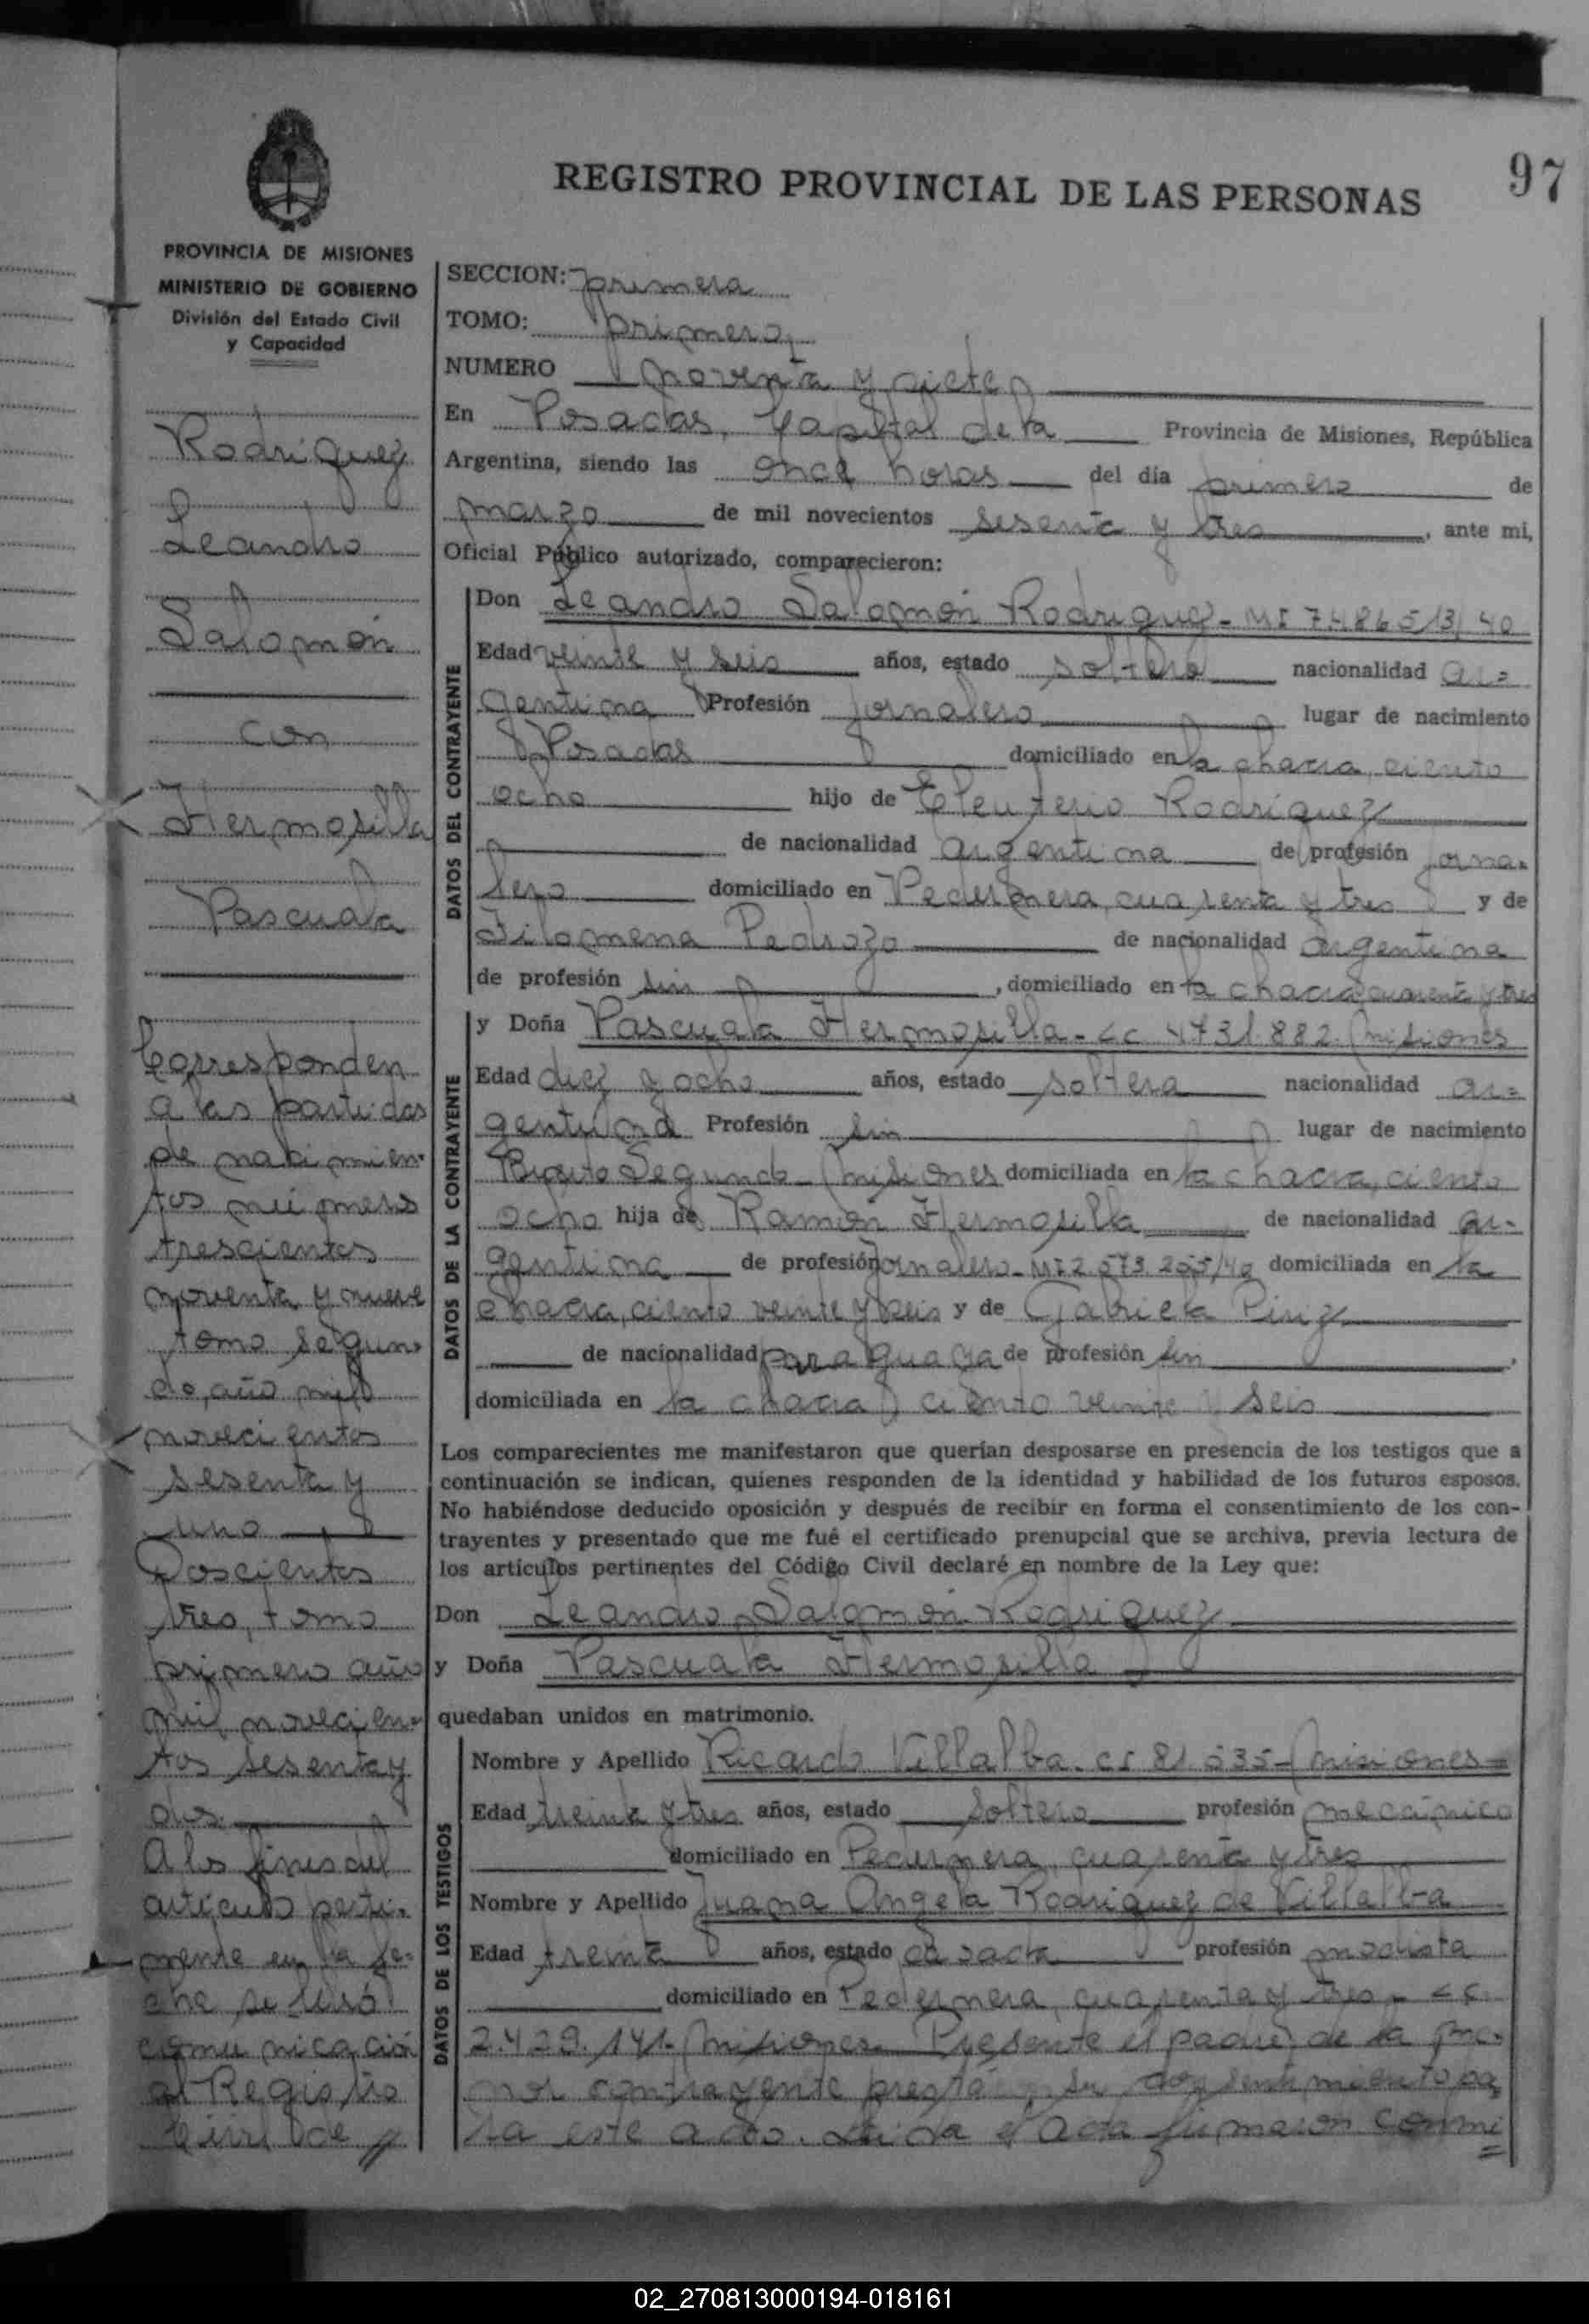 97
REGISTRO PROVINCIAL DE LAS PERSONAS
PROVINCIA DE MISIONES
MINISTERIO DE GOBIERNO
División del Estado Civil
y Capacidad
Rodriguez
Leandro
Salomón
con
Hermosilla
Pascuala
Corresponden
a las partidas
de nacimien
tos números
trescientos
noventa y nueve
tomo segun-
do, año mil
novecientos
sesenta y
uno
Doscientos
tres, tomo
primero año
mil novecien-
tos sesenta y
dos.
A los fines del
artículo perti-
nente en la fe-
cha se libró
comunicación
al Registro
Civil de
SECCION: primera
TOMO: primero
NUMERO noventa y siete
En Posadas, Capital de la Provincia de Misiones, República
Argentina, siendo las once horas del día primero de
marzo de mil novecientos sesenta y tres, ante mi,
Oficial Público autorizado, comparecieron:
DATOS DEL CONTRAYENTE
Don Leandro Salomón Rodriguez - MI 7.486.513/40
Edad veinte y seis años, estado soltero nacionalidad ar=
gentina Profesión jornalero lugar de nacimiento
Posadas domiciliado en la chacra, ciento
ocho hijo de Eleuterio Rodriguez
de nacionalidad argentina de profesión jorna-
lero domiciliado en Pedernera, cuarenta y tres y de
Filomena Pedrozo de nacionalidad argentina
de profesión sin, domiciliado en la chacra cuarenta y tres
DATOS DE LA CONTRAYENTE
y Doña Pascuala Hermosilla - CC 4.731.882. Misiones
Edad diez y ocho años, estado soltera nacionalidad ar=
gentina Profesión sin lugar de nacimiento
Puerto Segundo - Misiones domiciliada en la chacra, ciento
ocho hija de Ramón Hermosilla de nacionalidad ar-
gentina de profesión jornalero - MI 2.573.205/40 domiciliada en la
chacra, ciento veinte y seis y de Gabriela Piriz
de nacionalidad paraguaya de profesión sin,
domiciliada en la chacra ciento veinte y seis
Los comparecientes me manifestaron que querían desposarse en presencia de los testigos que a
continuación se indican, quienes responden de la identidad y habilidad de los futuros esposos.
No habiéndose deducido oposición y después de recibir en forma el consentimiento de los con-
trayentes y presentado que me fué el certificado prenupcial que se archiva, previa lectura de
los artículos pertinentes del Código Civil declaré en nombre de la Ley que:
Don Leandro Salomón Rodriguez
y Doña Pascuala Hermosilla
quedaban unidos en matrimonio.
DATOS DE LOS TESTIGOS
Nombre y Apellido Ricardo Villalba. CI 81.535 - Misiones =
Edad treinta y tres años, estado soltero profesión mecánico
domiciliado en Pedernera, cuarenta y tres
Nombre y Apellido Juana Angela Rodriguez de Villalba
Edad treinta años, estado casada profesión modista
domiciliado en Pedernera, cuarenta y tres - CC.
2.429.141. Misiones. Presente el padre de la me-
nor contrayente prestó su consentimiento pa
ra este acto. Leida el acta firmaron conmi
=
02_270813000194-018161